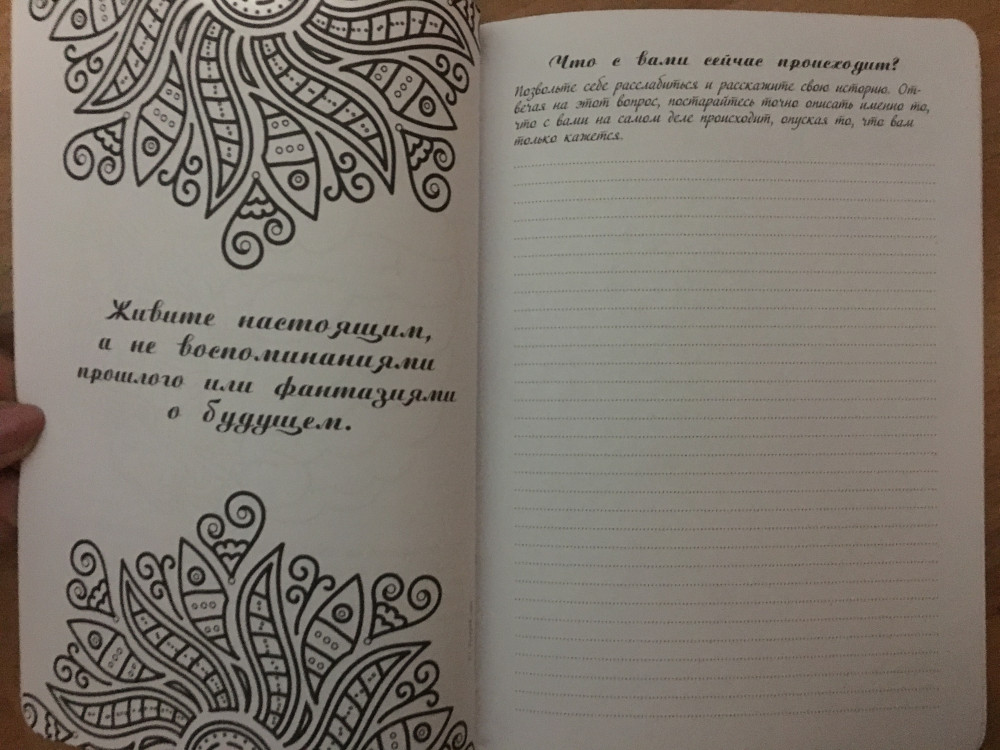 Живите настоящим,
а не воспоминаниями
прошлого или фантазиями
о будущем.
Что с вами сейчас происходит?
Позвольте себе расслабиться и расскажите свою историю. От-
вечая на этот вопрос, постарайтесь точно описать именно то,
что с вами на самом деле происходит, опуская то, что вам
только кажется.